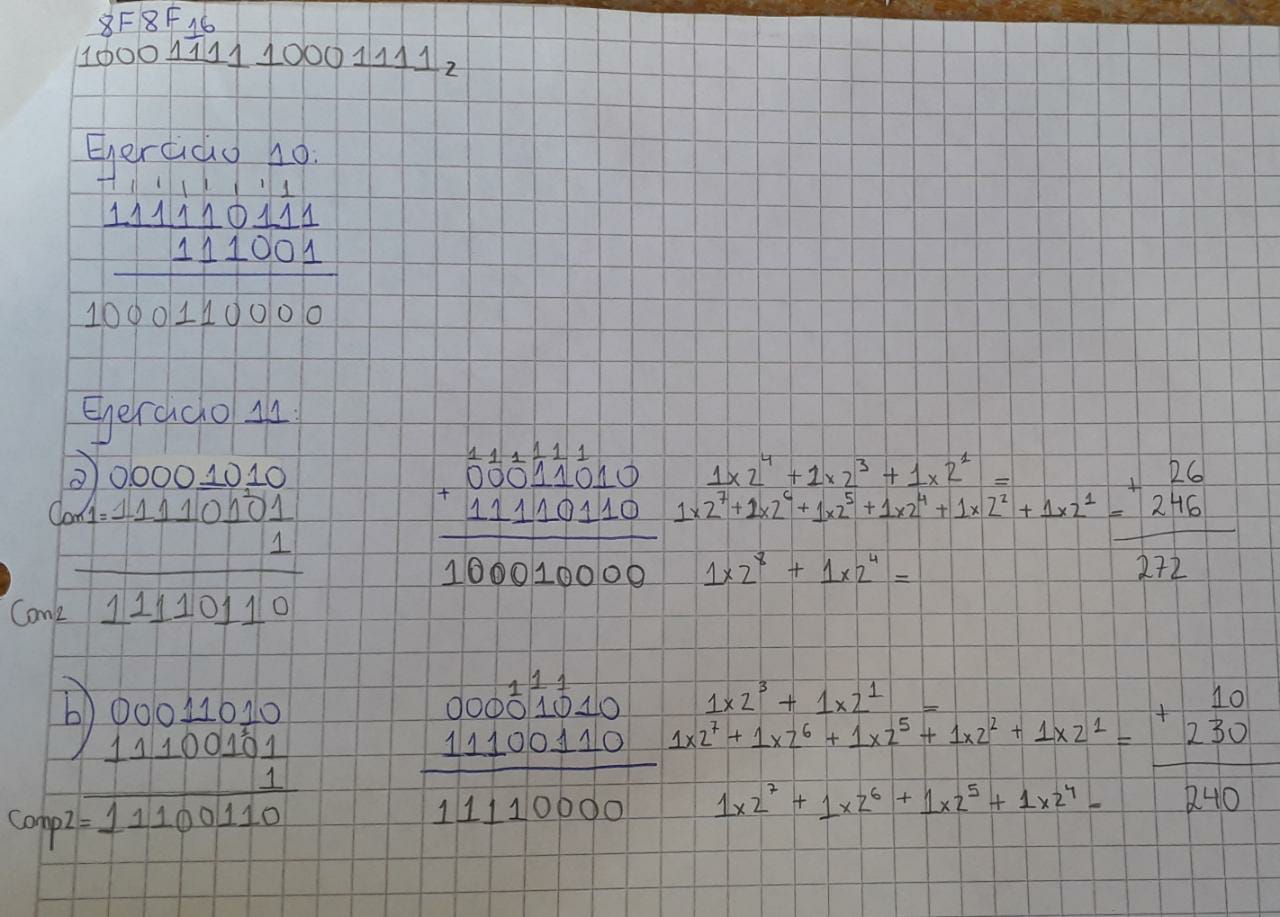 8F8F₁₆
1000 1111 1000 1111₂
Ejercicio 10:
1
111110111
111001
1000110000
Ejercicio 11:
a) 00001010
Com1=11110101
1
Com2 11110110
111111
00011010
+ 11110110
100010000
1x2⁴ + 1x2³ + 1x2¹ =
1x2⁷ + 1x2⁶ + 1x2⁵ + 1x2⁴ + 1x2² + 1x2¹ =
1x2⁸ + 1x2⁴ =
26
+ 246
272
b) 00011010
11100101
1
Comp2=11100110
111
00001010
11100110
11110000
1x2³ + 1x2¹ =
1x2⁷ + 1x2⁶ + 1x2⁵ + 1x2² + 1x2¹ =
1x2⁷ + 1x2⁶ + 1x2⁵ + 1x2⁴ -
10
+ 230
240